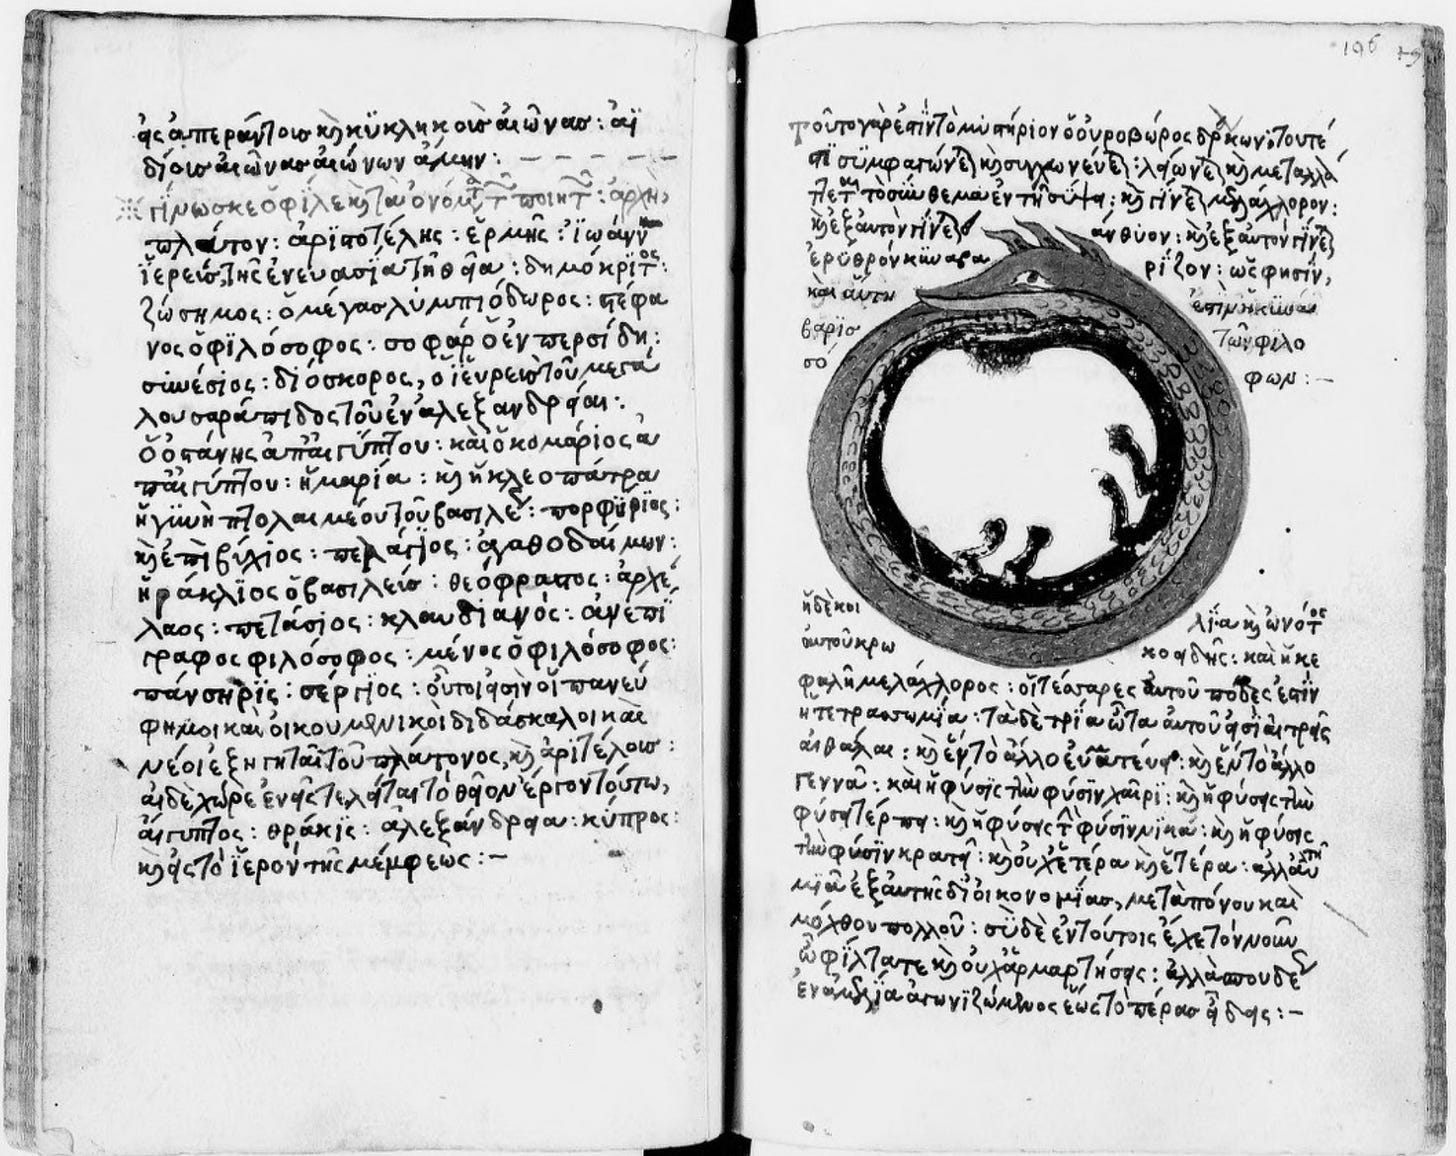 εἰς ἀπεράντοις καὶ κϋκληκοῖσ αἰῶνασ: ἀϊ
δίοισ αἰῶνασ αἰώνων ἀμην:
γίνωσκε ὁ φίλε καὶ τὰ ὀνόματ τ ποιητ: ἀρχὴ,
πλάτον: ἀριστοτέλης: ἑρμῆς: ἰωάνν
ἱερεὺσ τῆς ἐν ευασΐα τῆ θεῖα: δημόκρϊτος:
ζώσημος: ὁ μέγασ λύμπιόδωρος: στέφα
νος ὁ φϊλόσοφος: σοφάρ ὁ ἐν περσίδη:
σινέσϊος: διόσκορος, ὁ ἱευρεὺσ τοῦ μεγά
λου σαράπιδος τοῦ ἐν ἀλεξανδρείαι:
ὁ ὀστάνης ἀπαἰγύπτου: καὶ ὁ κομάριος ἀ
παἰγύπτου: ἡ μαρία: καὶ ἡ κλεοπάτρα
ἡ γϋνὴ πτολαιμέου τοῦ βασιλέ: πορφύρϊος:
καὶ ἐπιβίχϊος: πελάγϊος: ἀγαθοδαίμων:
ἡράκλϊος ὁ βασιλεὺσ: θεόφραστος: ἀρχέ
λαος: πετάσϊος: κλαυδϊανός: ἀνεπΐ
γραφος φιλόσοφος: μένος ὁ φιλόσοφος:
πάνσηρϊς: σέργϊος: οὗτοι εἰσὶν οἱ πανεύ
φημοι καὶ οἰκουμενικοὶ διδάσκαλοι καὶ
νέοι ἐξηγηταῖ τοῦ πλάτονος, καὶ ἀριστέλουσ:
αἱ δὲ χώρε ἐν αἷς τελεῖται τὸ θεῖον ἔργον τούτω,
αἴγυπτος: θράκϊς: ἀλεξάνδρεια: κύπρος:
καὶ εἰς τὸ ἱερόν τῆς μέμφεως:
196
τοῦτο γάρ ἐστὶν τὸ μϋστήριον ὁ οὐροβώρος δρκων: τουτέ
στι σϋμφαγώνε καὶ συγχωνεύε: λειώνε καὶ μεταλλά
τετ τὸ σύνθεμα ἐν τῆ σίψη: καὶ γίνε μελάγχορον:
καὶ ἐξ αὐτὸν γίνε ἀνθύον: καὶ ἐξ αὐτὸν γίνε
ἐρυθρόν κϊνναβα ρΐζον: ὡς φησὶν,
καὶ αὕτη ἐστὶν ἡ κϊννά
βαρϊσ τῶν φιλο
σό φων:
ἡ δὲ κοι λΐα καὶ ὠνότος
αὐτοῦ κρω κοειδῆς: καὶ ἡ κε
φαλὴ μελάχλορος: οἱ τέσσαρες αὐτοῦ πόδες ἐστὶν
ἡ τετρασωμΐα: τὰ δὲ τρία ὦτα αὐτοῦ εἰσὶ αἱ τρεῖς
αἰθάλαι: καὶ ἓν τὸ ἄλλο ἐν καὶ τὸ ἄλλο
γεννᾶ: καὶ ἡ φύσϊς τὴν φύσϊν χαίρϊ: καὶ ἡ φύσεις τὴν
φύσι τέρπει: καὶ ἡ φύσης τ φύσϊν νϊκᾶ: καὶ ἡ φύσϊς
τὴν φύσϊν κρατεῖ: καὶ οὐχ ἑτέρα καὶ ἑτέρα: ἀλλ
μϊᾶ ἐξ αὐτῆς δϊ οἰκονομίασ, μετὰ πόνου καὶ
μόχθου πολλοῦ: σϋ δὲ ἐν τούτοις ἔχε τόν νοῦν
ὦ φίλτατε καὶ οὐχ ἁμαρτήσεις: ἀλλὰ σπουδε
ἐν ἀμελΐα ἀγωνϊζώμενος ἕως τὸ πέρασ εἴδεις: